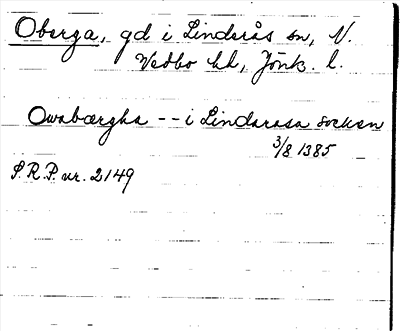 Oberga, gd i Linderås sn, N.
Vedbo hd, Jönk. l.
Owabærgha -- i Lindarasa socken
3/8 1385
S.R.P. nr. 2149